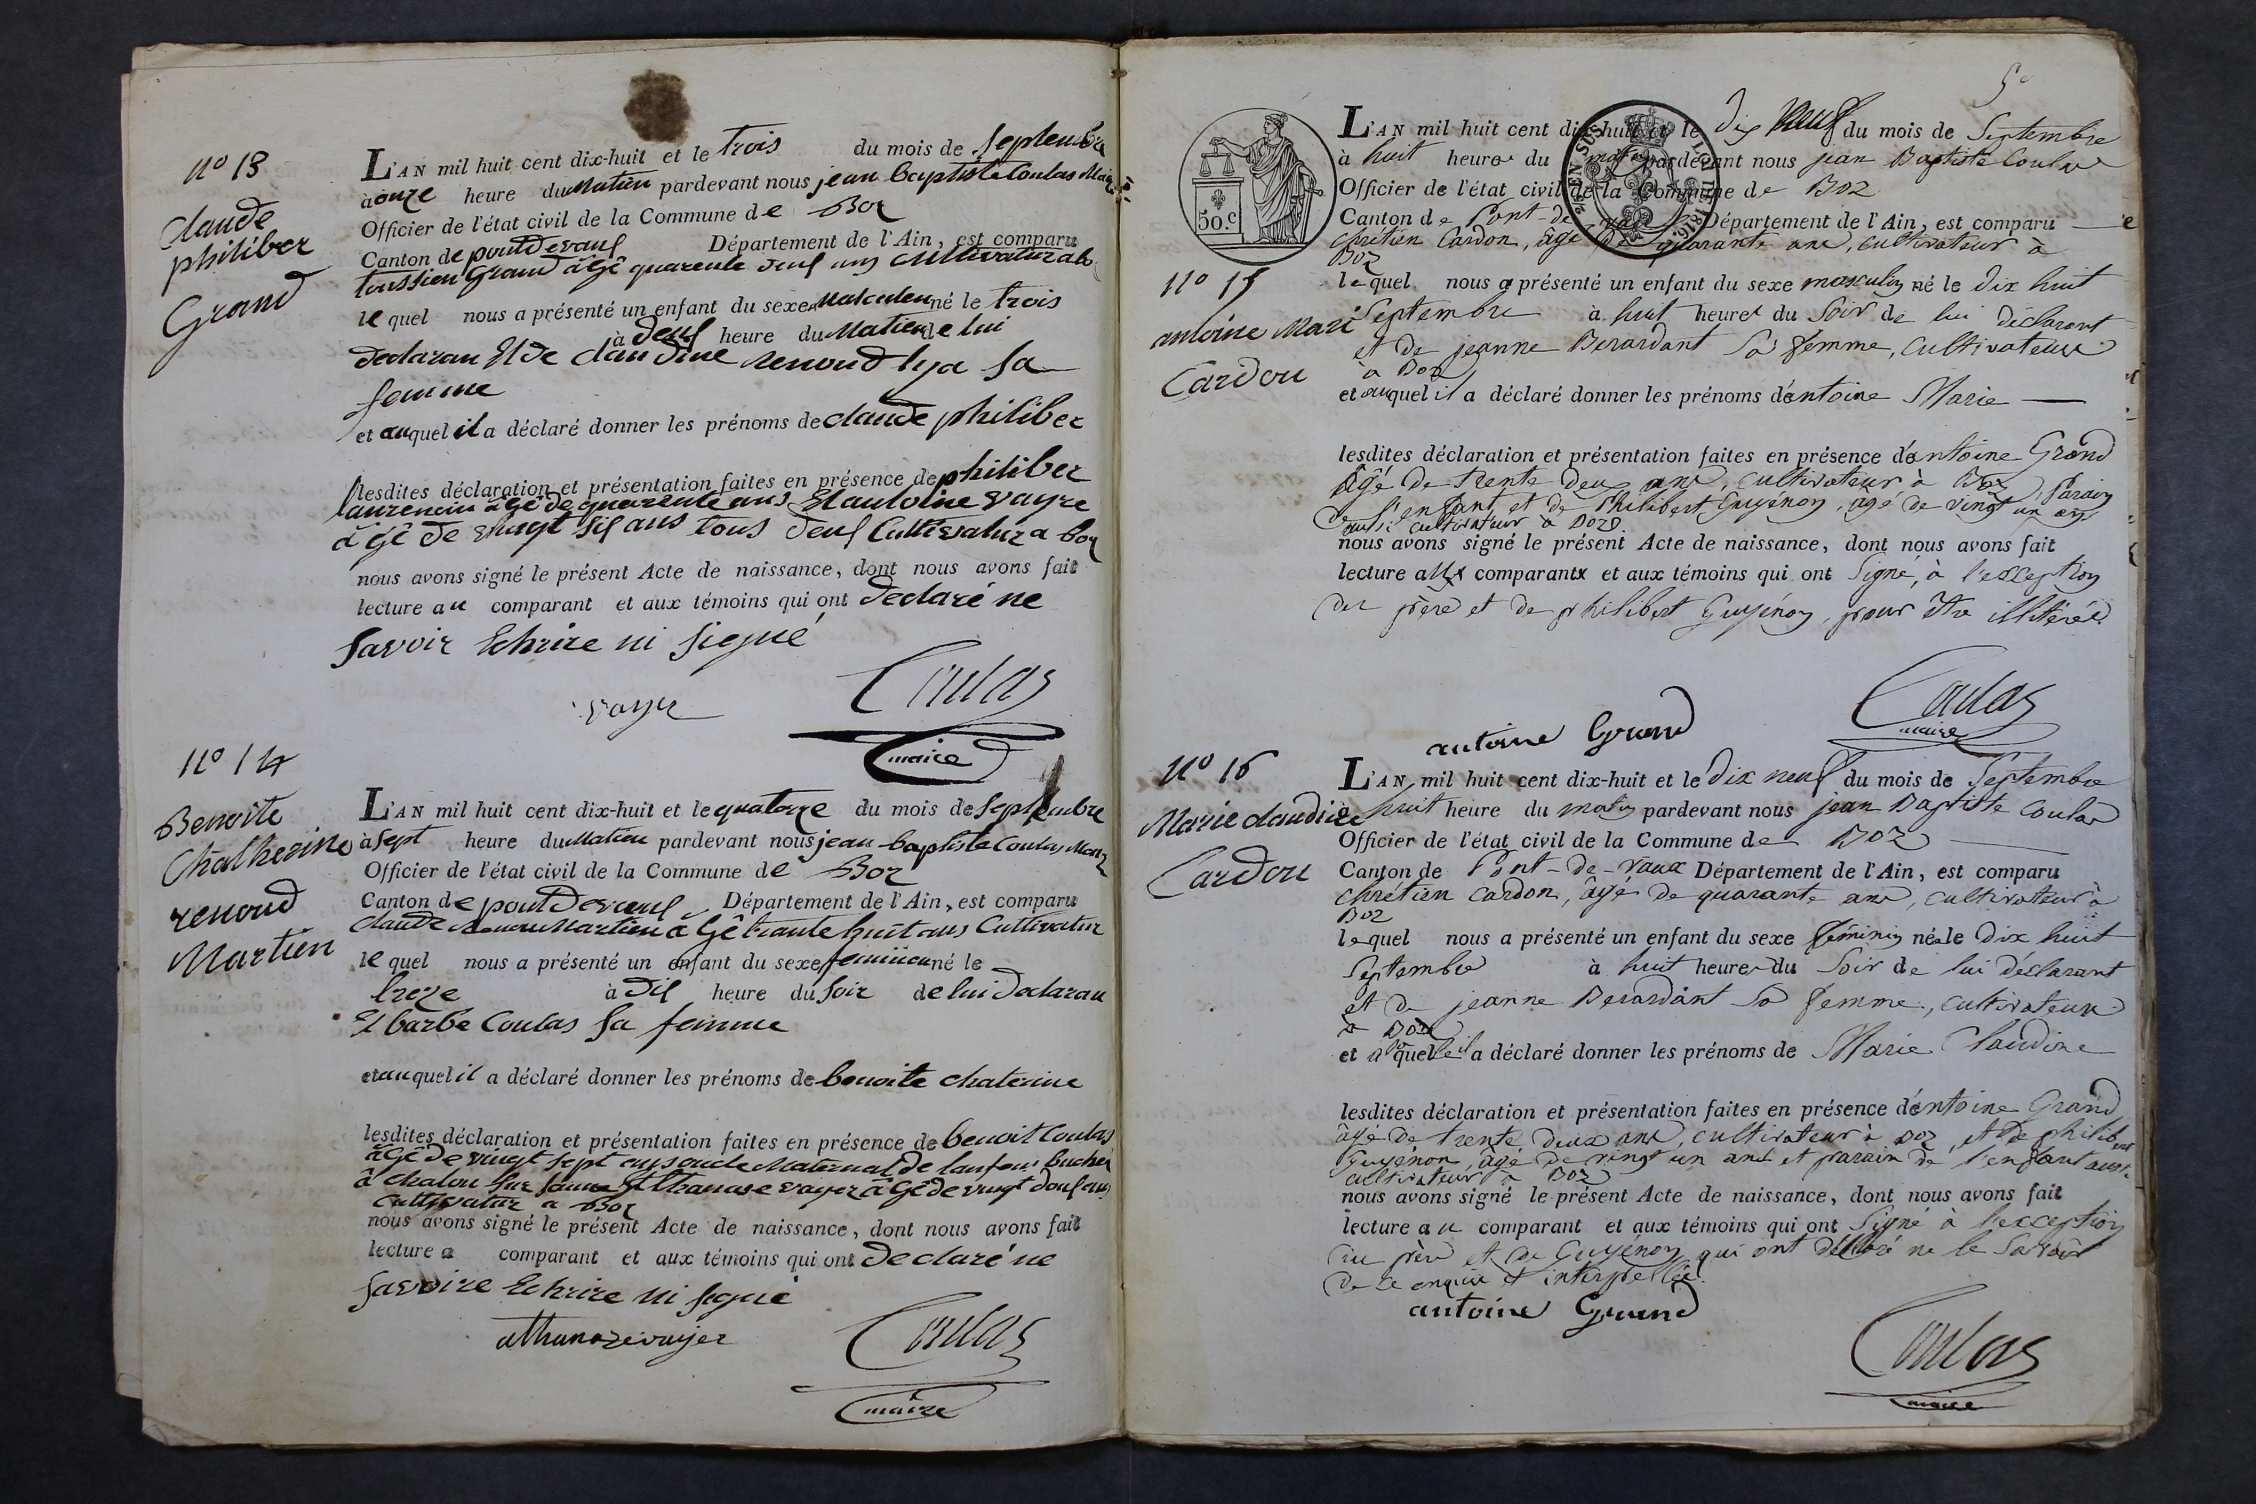 n° 13
claude
philiber
Grand
L'AN mil huit cent dix-huit et le trois du mois de septembre
à onze heure du Matien pardevant nous jean baptiste Coulas Maire
Officier de l'état civil de la Commune de Boz
Canton de pontdevauf Département de l'Ain, est comparu
toussien Grand âgé quarente deuf ans cultivatur a boz
le quel nous a présenté un enfant du sexe Masculen né le trois
à deuf heure du Matien de lui
declaran Et de claudine renoud lya sa
femme
et auquel il a déclaré donner les prénoms de claude philiber
lesdites déclaration et présentation faites en présence de philiber
laurencin âgé de quarente ans Et antoine vayre
âgé de vingt sif ans tous deuf Cultivatur a boz
nous avons signé le présent Acte de naissance, dont nous avons fait
lecture au comparant et aux témoins qui ont declaré ne
savoir Echrire ni signé
vayer Coulas
maire
n° 14
Benoite
Chatherine
renoud
Martien
L'AN mil huit cent dix-huit et le quatorze du mois de septembre
à sept heure du Matien pardevant nous jean baptiste Coulas Maire
Officier de l'état civil de la Commune de Boz
Canton de pontdevauf Département de l'Ain, est comparu
claude renou Martien âgé trante huit ans Cultivatur
le quel nous a présenté un enfant du sexe feminien né le
treze à dif heure du soir de lui declaran
Et barbe Coulas sa femme
et auquel il a déclaré donner les prénoms de benoite chaterine
lesdites déclaration et présentation faites en présence de benoit Coulas
âgé de vingt sept ans oncle Maternal de lanfans
â chalon sur saune Et thanase vayer âgé de vingt deuf ans
Cultivatur a Boz
nous avons signé le présent Acte de naissance, dont nous avons fait
lecture a comparant et aux témoins qui ont declaré ne
savoire Echrire ni signé
athanaze vayer Coulas
maire
5e
50.c
EN SUS
L'AN mil huit cent dix-huit et le dix neuf du mois de Septembre
à huit heures du matin pardevant nous jean Baptiste Coulas
Officier de l'état civil de la Commune de Boz
Canton de Pont-de-vaux Département de l'Ain, est comparu
chrétien Cardon, âgé de quarante ans, cultivateur à
Boz
n° 15
antoine Mari
Cardon
lequel nous a présenté un enfant du sexe masculin né le dix huit
Septembre à huit heures du Soir de lui déclarant
et de jeanne Berardant sa femme, cultivateurs
à Boz
et auquel il a déclaré donner les prénoms d'antoine Marie
lesdites déclaration et présentation faites en présence d'antoine Grand
âgé de trente deux ans, cultivateur à Boz, Parain
de l'enfant, et de Philibert Guyénon, âgé de vingt un ans
aussi cultivateur à Boz
nous avons signé le présent Acte de naissance, dont nous avons fait
lecture aux comparants et aux témoins qui ont Signé, à l'exception
du père et de philibert Guyénon, pour être illitérés
antoine Grand Coulas
maire
n° 16
Marie claudine
Cardon
L'AN mil huit cent dix-huit et le dix neuf du mois de Septembre
à huit heure du matin pardevant nous jean Baptiste Coulas
Officier de l'état civil de la Commune de Boz
Canton de Pont-de-vaux Département de l'Ain, est comparu
chrétien Cardon, âgé de quarante ans, cultivateur à
Boz
lequel nous a présenté un enfant du sexe féminin née le dix huit
Septembre à huit heures du Soir de lui déclarant
et de jeanne Berardant sa femme, cultivateurs
à Boz
et à laquelle il a déclaré donner les prénoms de Marie Claudine
lesdites déclaration et présentation faites en présence d'antoine Grand
âgé de trente deux ans, cultivateur à Boz, et de philibert
Guyénon, âgé de vingt un ans et parain de l'enfant aussi
cultivateur à Boz
nous avons signé le présent Acte de naissance, dont nous avons fait
lecture au comparant et aux témoins qui ont Signé à l'exception
du père et de Guyénon qui ont déclaré ne le Savoir
de ce enquis et interpellés.
antoine Grand Coulas
maire